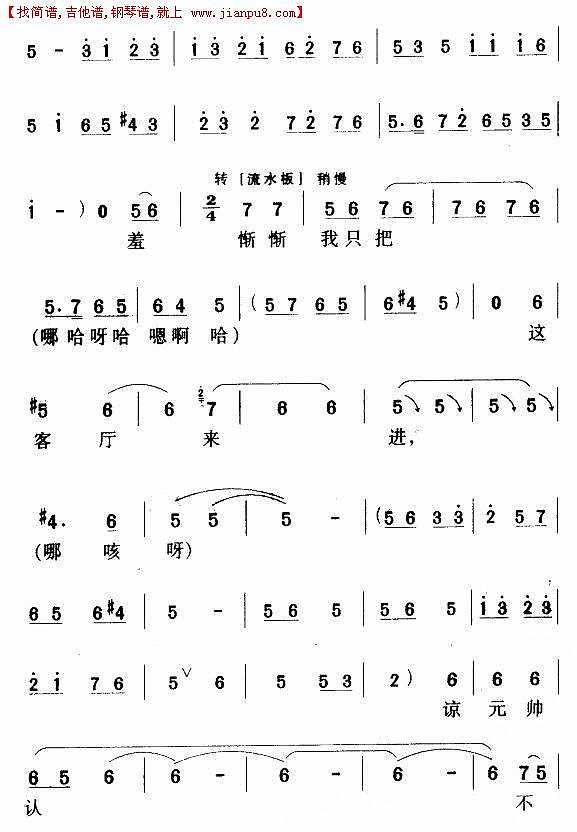 【找简谱,吉他谱,钢琴谱,就上 www.jianpu8.com】
5 - 3 i 2 3 | i 3 2 i 6 2 7 6 | 5 3 5 i i i 6
5 i 6 5 #4 3 | 2 3 2 7 2 7 6 | 5. 6 7 2 6 5 3 5
转〔流水板〕稍慢
i - ) 0 5 6 | 2/4 7 7 | 5 6 7 6 | 7 6 7 6
羞 惭惭 我只把
5. 7 6 5 | 6 4 5 | ( 5 7 6 5 | 6 #4 5 ) | 0 6
(哪哈呀哈 嗯啊哈) 这
#5 6 | 6 2 7 | 6 6 | 5 5 | 5 5
客 厅 来 进,
#4. 6 | 5 5 | 5 - | ( 5 6 3 3 | 2 5 7
(哪 咳 呀)
6 5 6 #4 | 5 - | 5 6 5 | 5 6 5 | i 3 2 3
2 i 7 6 | 5 ∨ 6 | 5 5 3 | 2 ) 6 | 6 6
谅 元 帅
6 5 6 | 6 - | 6 - | 6 - | 6 7 5
认 不